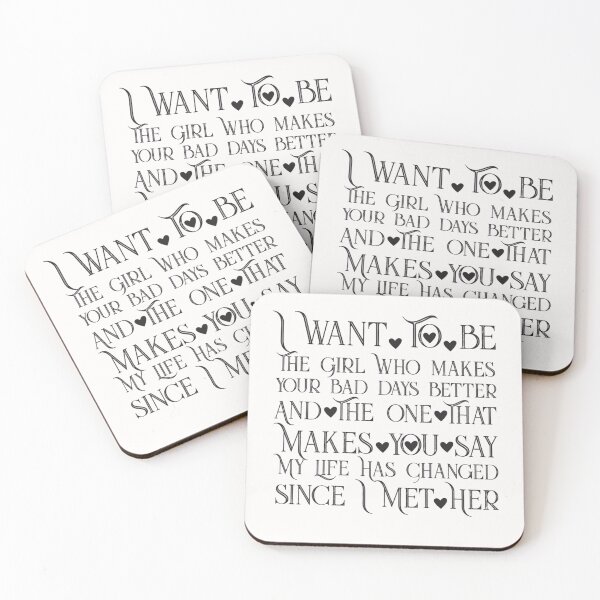 I WANT TO BE
THE GIRL WHO MAKES
YOUR BAD DAYS BETTER
AND THE ONE THAT
YOU SAY
I WANT TO BE
THE GIRL WHO MAKES
YOUR BAD DAYS BETTER
AND THE ONE THAT
MAKES YOU SAY
MY LIFE HAS CHANGED
HER
I WANT TO BE
THE GIRL WHO MAKES
YOUR BAD DAYS BETTER
AND THE ONE THAT
MAKES YOU SAY
MY LIFE HAS CHANGED
SINCE I MET
I WANT TO BE
THE GIRL WHO MAKES
YOUR BAD DAYS BETTER
AND THE ONE THAT
MAKES YOU SAY
MY LIFE HAS CHANGED
SINCE I MET HER